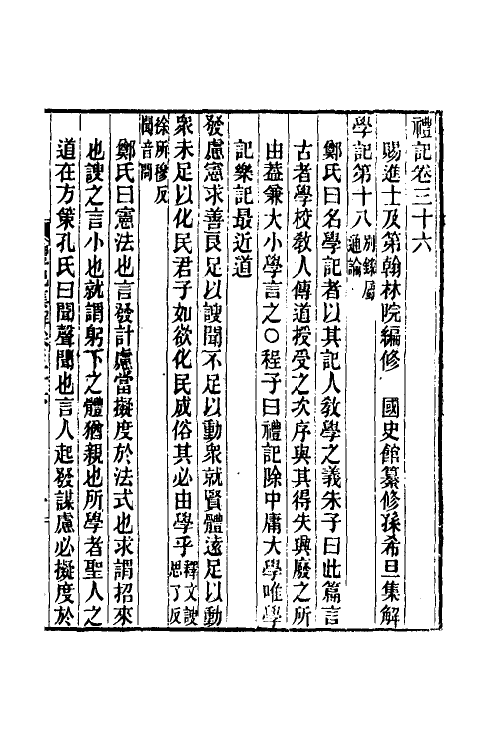 禮記卷三十六
賜進士及第翰林院編修　國史館纂修孫希旦集解
學記第十八別錄屬通論
鄭氏曰名學記者以其記人敎學之義朱子曰此篇言
古者學校敎人傳道授受之次序與其得失興廢之所
由葢兼大小學言之○程子曰禮記除中庸大學唯學
記樂記最近道
發慮憲求善良足以謏聞不足以動衆就賢體遠足以動
衆未足以化民君子如欲化民成俗其必由學乎釋文謏思了反
徐所穆反聞音問
鄭氏曰憲法也言發計慮當擬度於法式也求謂招來
也謏之言小也就謂躬下之體猶親也所學者聖人之
道在方策孔氏曰聞聲聞也言人起發謀慮必擬度於